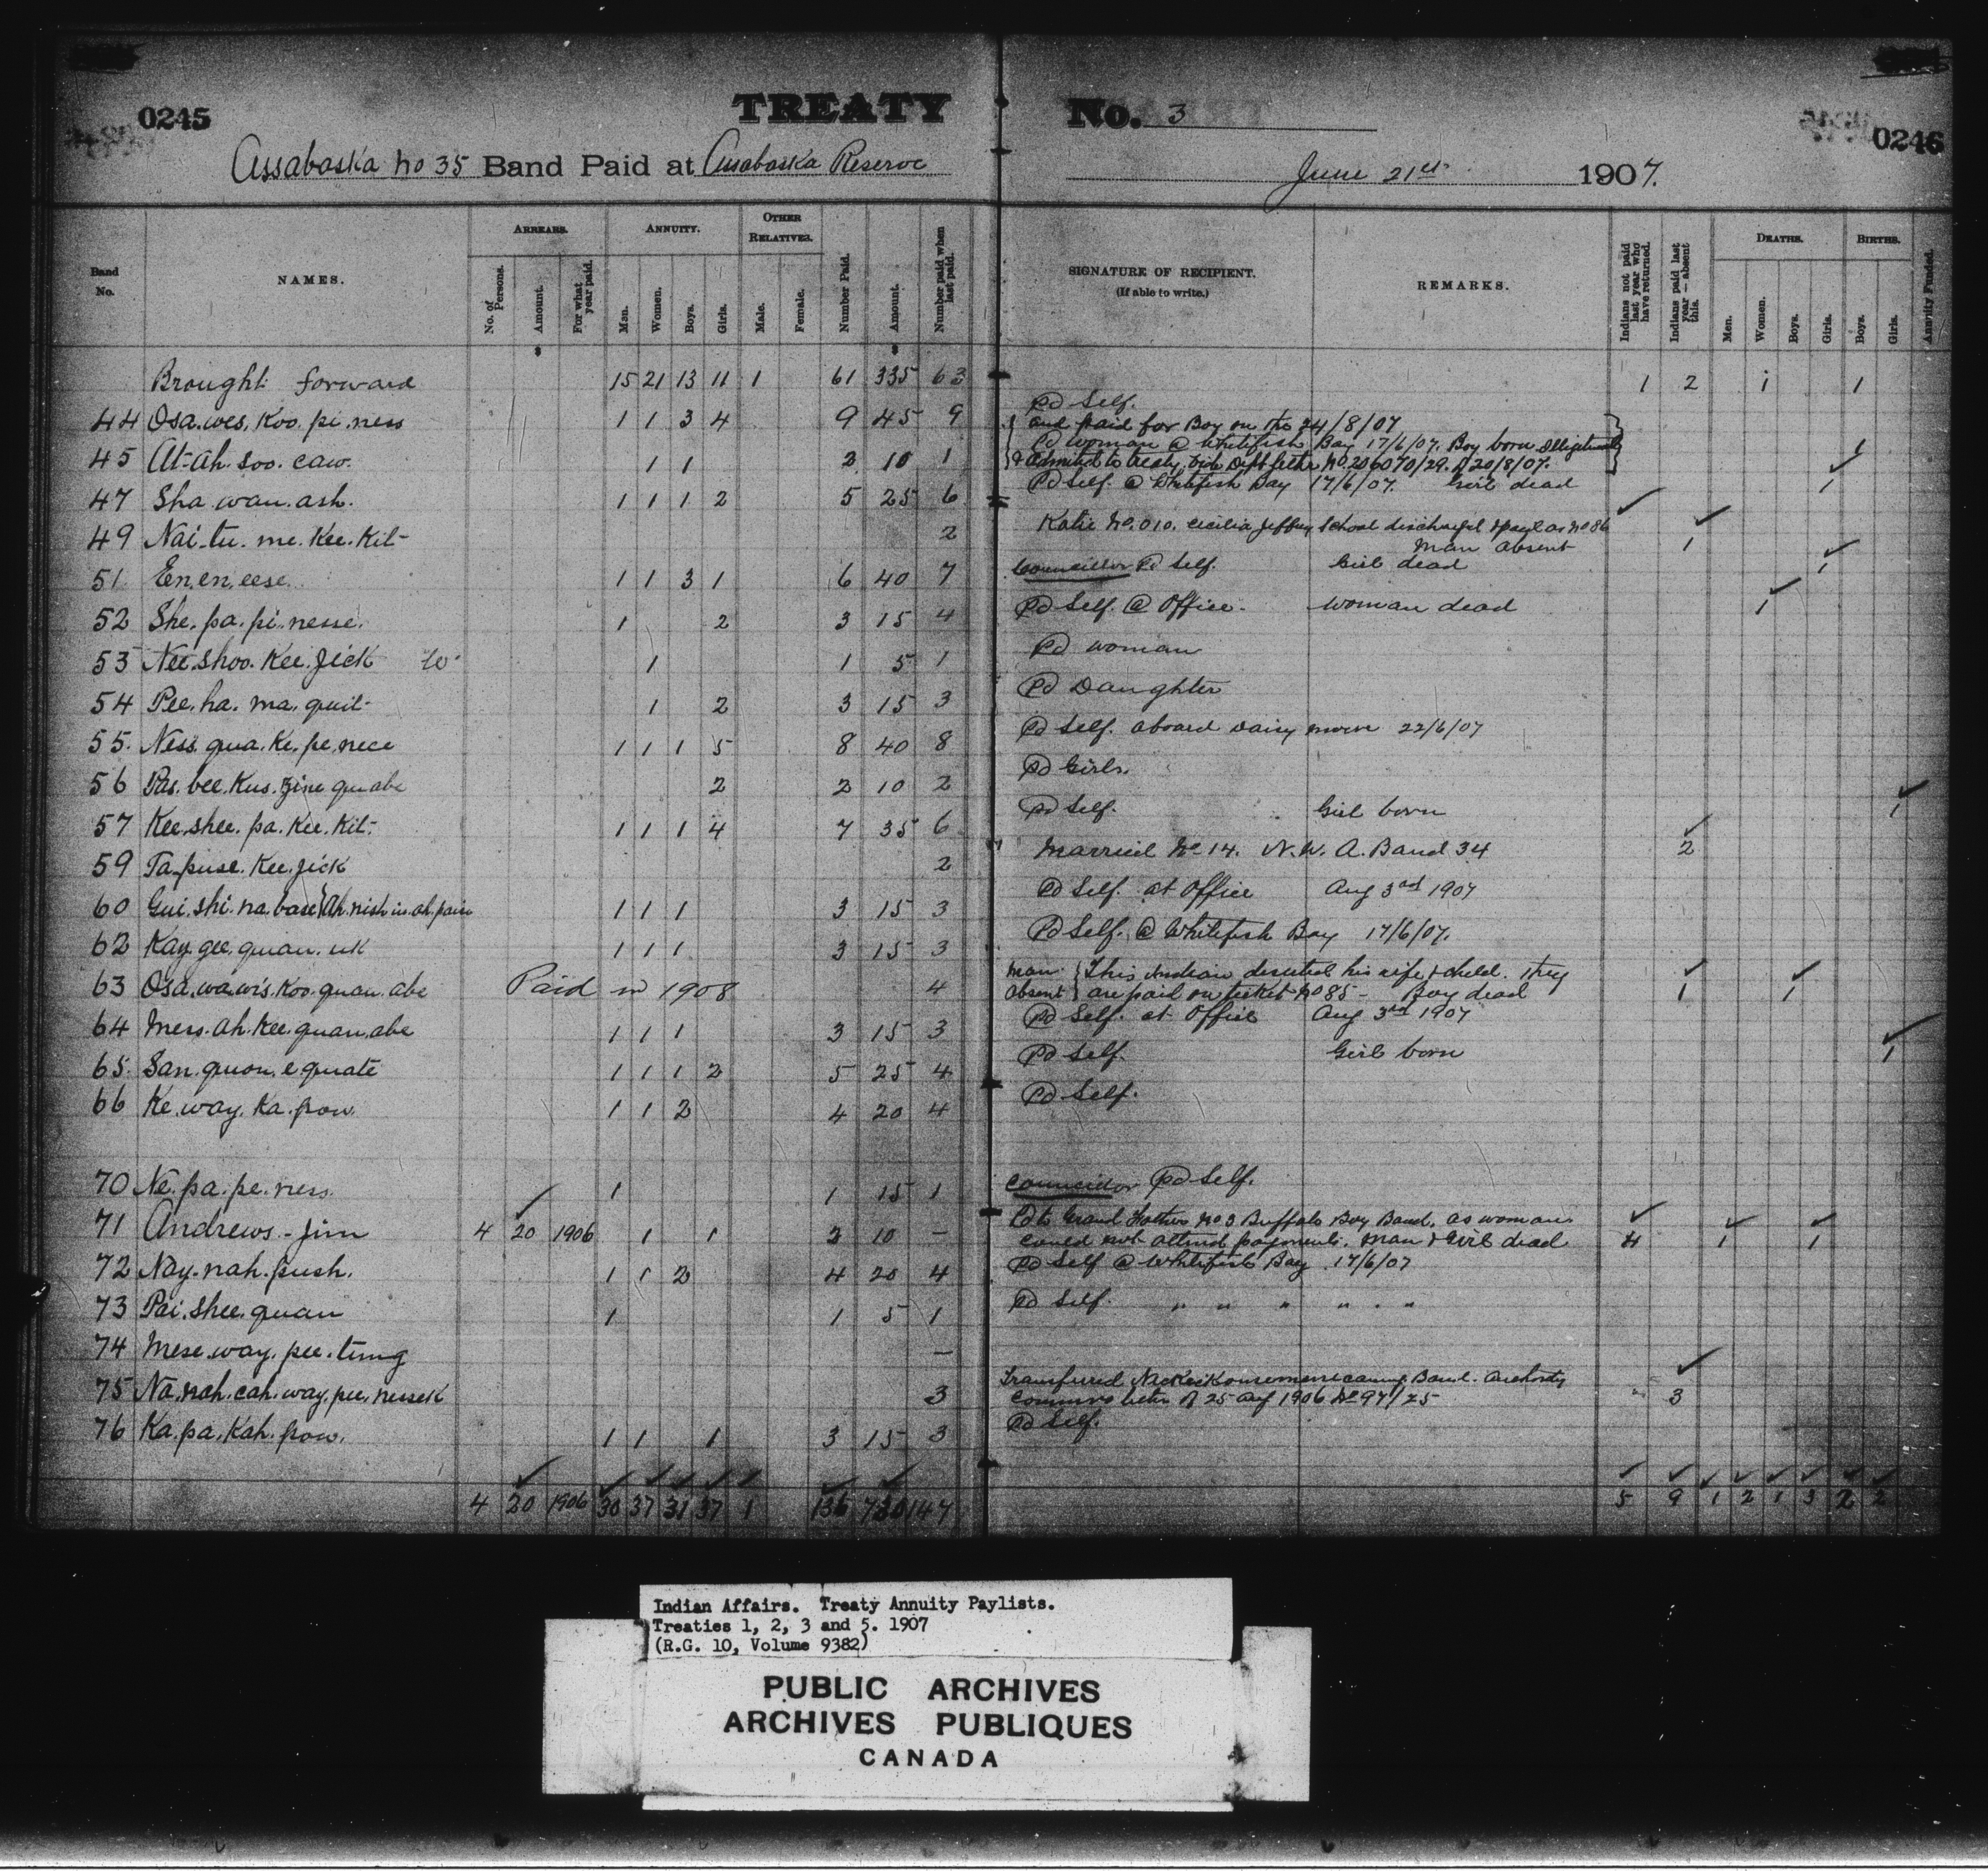 0245
TREATY No. 3
0246
Assabaska No 35 Band Paid at Assabaska Reserve June 21st 1907.
Band No.
NAMES.
ARREARS.
No. of Persons.
Amount.
For what year paid.
ANNUITY.
Men.
Women.
Boys.
Girls.
OTHER RELATIVES.
Male.
Female.
Number Paid.
Amount.
Number paid when last paid.
SIGNATURE OF RECIPIENT.
(If able to write.)
REMARKS.
Indians not paid last year who have returned.
Indians paid last year — absent this.
DEATHS.
Men.
Women.
Boys.
Girls.
BIRTHS.
Boys.
Girls.
Annuity Funded.
$ $
Brought forward 15 21 13 11 1 61 335 63 1 2 1 1
44 Osa.wes.Koo.pi.ness 1 1 3 4 9 45 9 Pd Self.
45 At-ah.soo.caw. 1 1 2 10 1 and paid for Boy on the 24/8/07 Pd woman @ Whitefish Bay 17/6/07. Boy born illegitimate & admitted to treaty vide Dept letter No. 206070/29. of 20/8/07. 1
47 Sha.wan.ash. 1 1 1 2 5 25 6 Pd Self. @ Whitefish Bay 17/6/07. Girl dead ✓ 1
49 Nai-tu.me.Kee.Kit- 2 Katie No. 010. Cecilia Jeffrey School discharged & payt as No 86 Man absent ✓ ✓ 1
51 En.en.eese. 1 1 3 1 6 40 7 Councillor Pd Self. Girl dead ✓ 1
52 She.pa.pi.nesse. 1 2 3 15 4 Pd Self. @ Office. Woman dead ✓ 1
53 Nee.shoo.Kee.Jick W. 1 1 5 1 Pd woman
54 Pee.ha.ma.quit- 1 2 3 15 3 Pd Daughter
55. Ness.qua.Ke.pe.nece 1 1 1 5 8 40 8 Pd Self. aboard Daisy Moore 22/6/07
56 Pas.bee.Kus.Zine quabe 2 2 10 2 Pd Girls.
57 Kee.shee.pa.Kee.Kit- 1 1 1 4 7 35 6 Pd Self. Girl born ✓ 1
59 Ta.puse.Kee.Jick 2 Married No 14. N.W.A. Band 34 ✓ 2
60 Gui.shi.na.base 1 1 1 3 15 3 Pd Self. at Office Aug 3rd 1907
62 Kay.gee.quan.uk 1 1 1 3 15 3 Pd Self. @ Whitefish Bay 17/6/07.
63 Osa.wa.wis.Koo.quan.abe Paid in 1908 4 Man absent This Indian deserted his wife & child. They are paid on ticket No 85 - Boy dead ✓ 1 ✓ 1
64 Mess.ah.Kee.quan.abe 1 1 1 3 15 3 Pd Self. at Office Aug 3rd 1907
65. San.quon.e.quate 1 1 1 2 5 25 4 Pd Self. Girl born ✓ 1
66 Ke.way.Ka.pow. 1 1 2 4 20 4 Pd Self.
70 Ne.pa.pe.ness. 1 1 15 1 Councillor Pd Self.
71 Andrews - Jim 4 ✓ 20 1906 1 1 2 10 — Pd to Grand Father No 3 Buffalo Bay Band, as woman could not attend payments. Man & Girl dead ✓ 4 ✓ 1 ✓ 1
72 Nay.nah.push. 1 1 2 4 20 4 Pd Self @ Whitefish Bay 17/6/07
73 Pai.shee.quan 1 1 5 1 Pd Self. " " " " " "
74 Mese.way.pee.tung —
75 Na.nah.cah.way.pee.nessek 3 Transferred Band. Authority Commrs letter of 25 Aug 1906 No 97/25 ✓ 3
76 Ka.pa.Kah.pow. 1 1 1 3 15 3 Pd Self.
4 20 1906 30 37 31 37 1 136 730 147 5 9 1 2 1 3 2 2
Indian Affairs. Treaty Annuity Paylists.
Treaties 1, 2, 3 and 5. 1907
(R.G. 10, Volume 9382)
PUBLIC ARCHIVES
ARCHIVES PUBLIQUES
CANADA